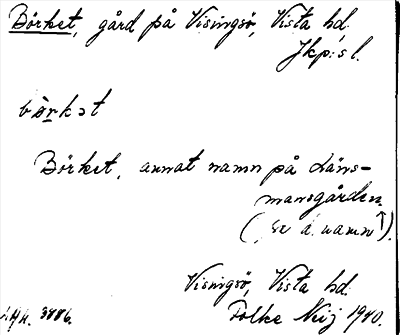 Börket, gård på Visingsö, Vista hd.
Jkp:s l.
bòrkət
Börket, annat namn på Läns-
mansgården.
(se d. namn ↑).
Visingsö, Vista hd.
Folke Nij 1940.